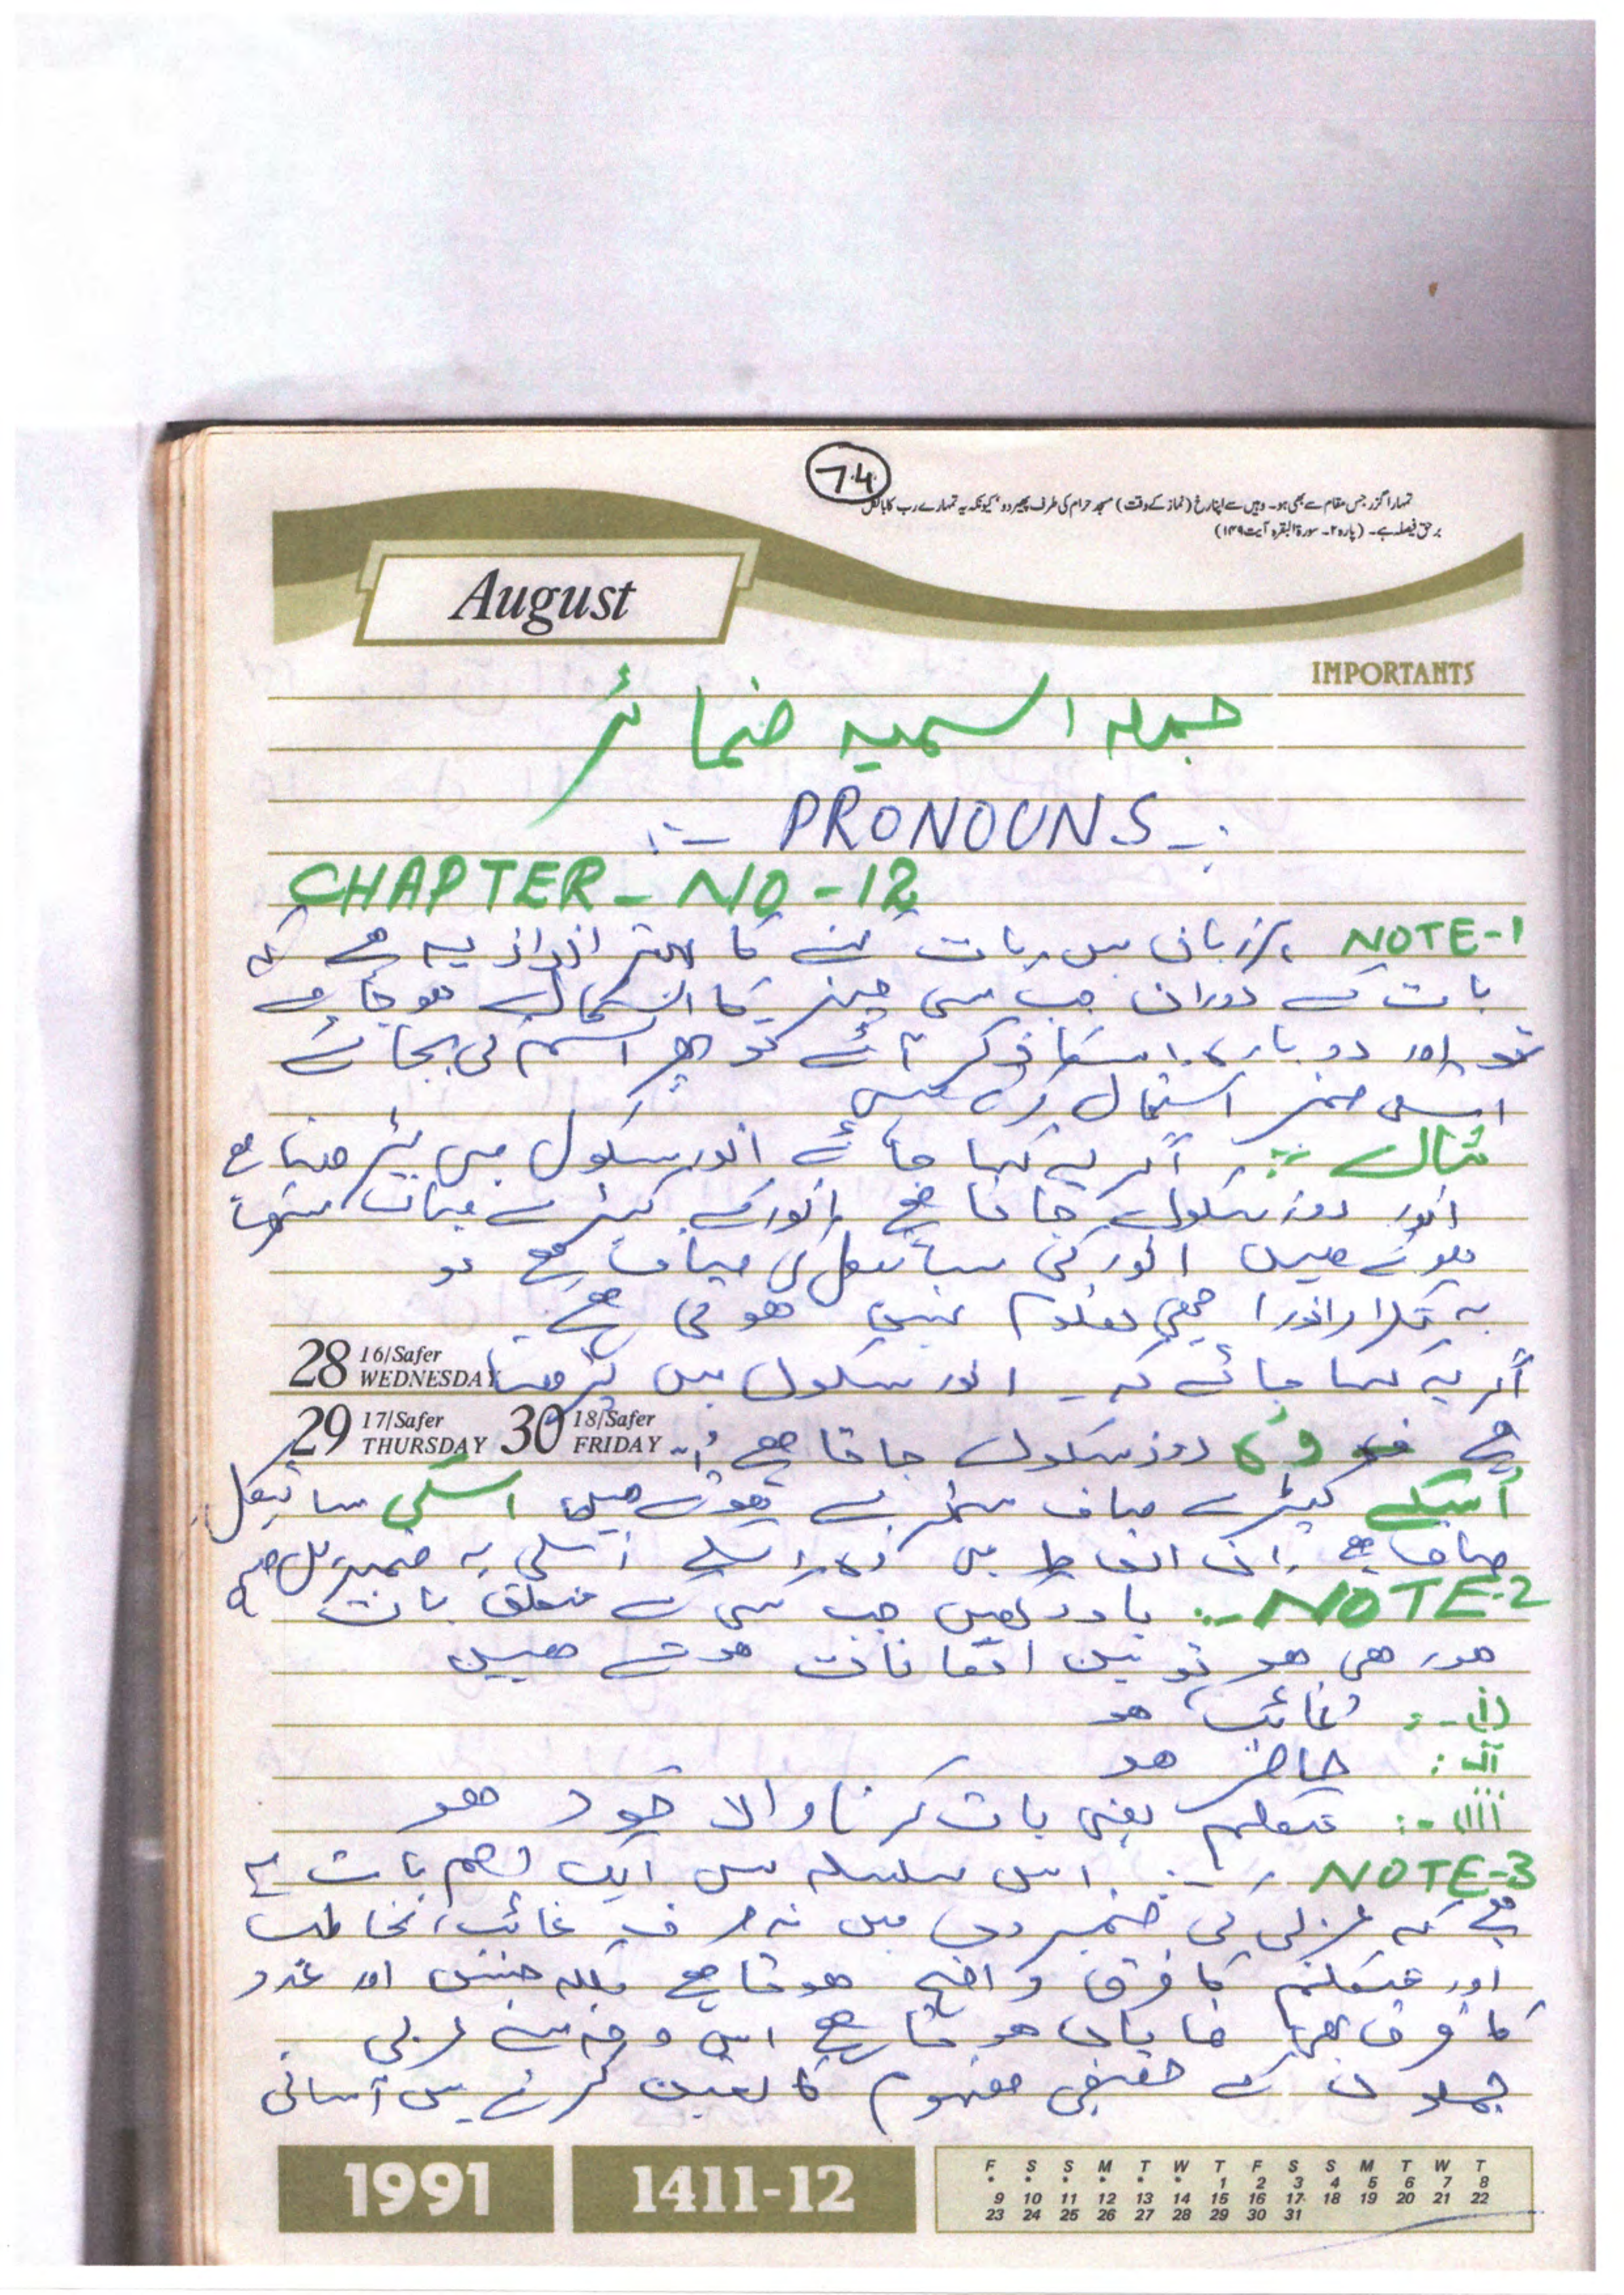 74
تمہارا گزر جس مقام سے بھی ہو۔ وہیں سے اپنا رخ (نماز کے وقت) مسجد حرام کی طرف پھیر دو' کیونکہ یہ تمہارے رب کا بالکل
برحق فیصلہ ہے۔ (پارہ ۲۔ سورۃ البقرہ آیت ۱۴۹)
August
IMPORTANTS
جملہ اسمیہ ضمائر
:- PRONOUNS -:
CHAPTER - NO - 12
NOTE-1 ہر زبان میں بات کہنے کا بہتر انداز یہ ہے کہ
بات کے دوران جب کسی چیز کا استعمال ہو جائے
تو اور دوبارہ اسکا ذکر آئے تو پھر اسم کی بجائے
اسکی ضمیر استعمال کرتے ہیں
مثال :- اگر یہ کہا جائے انور سکول میں پڑھتا ہے
انور روز سکول جاتا ہے انور کے کپڑے صاف ستھرے
ہوتے ہیں انور کی سائیکل کی صاف ہے تو
یہ تکرار انور اچھی معلوم نہیں ہوتی ہے
28 16/Safer WEDNESDAY اگر یہ کہا جائے کہ ۔ انور سکول میں پڑھتا
29 17/Safer THURSDAY 30 18/Safer FRIDAY ہے وہ روز سکول جاتا ہے
اُسکے کپڑے صاف ستھرے ہوتے ہیں اسکی سائیکل
صاف ہے ان الفاظ میں وہ، اسکے، اسکی یہ ضمیریں ہیں
NOTE-2 :- یاد رکھیں جب کسی کے متعلق بات
ہو رہی ہو تو تین امکانات ہوتے ہیں
(i) -: غائب ہو
ii : حاضر ہو
iii -: متکلم یعنی بات کرنا والا خود ہو
NOTE-3 -: اس سلسلہ میں ایک اہم بات یہ
ہے کہ عربی کی ضمیروں میں نہ صرف غائب، مخاطب
اور متکلم کا فرق واضح ہوتا ہے بلکہ جنس اور عدد
کا فرق بھی نمایاں ہوتا ہے اس وجہ سے عربی
جملوں کے حقیقی مفہوم کا تعین کرنے میں آسانی
1991
1411-12
F S S M T W T F S S M T W T
* * * * * * 1 2 3 4 5 6 7 8
9 10 11 12 13 14 15 16 17 18 19 20 21 22
23 24 25 26 27 28 29 30 31